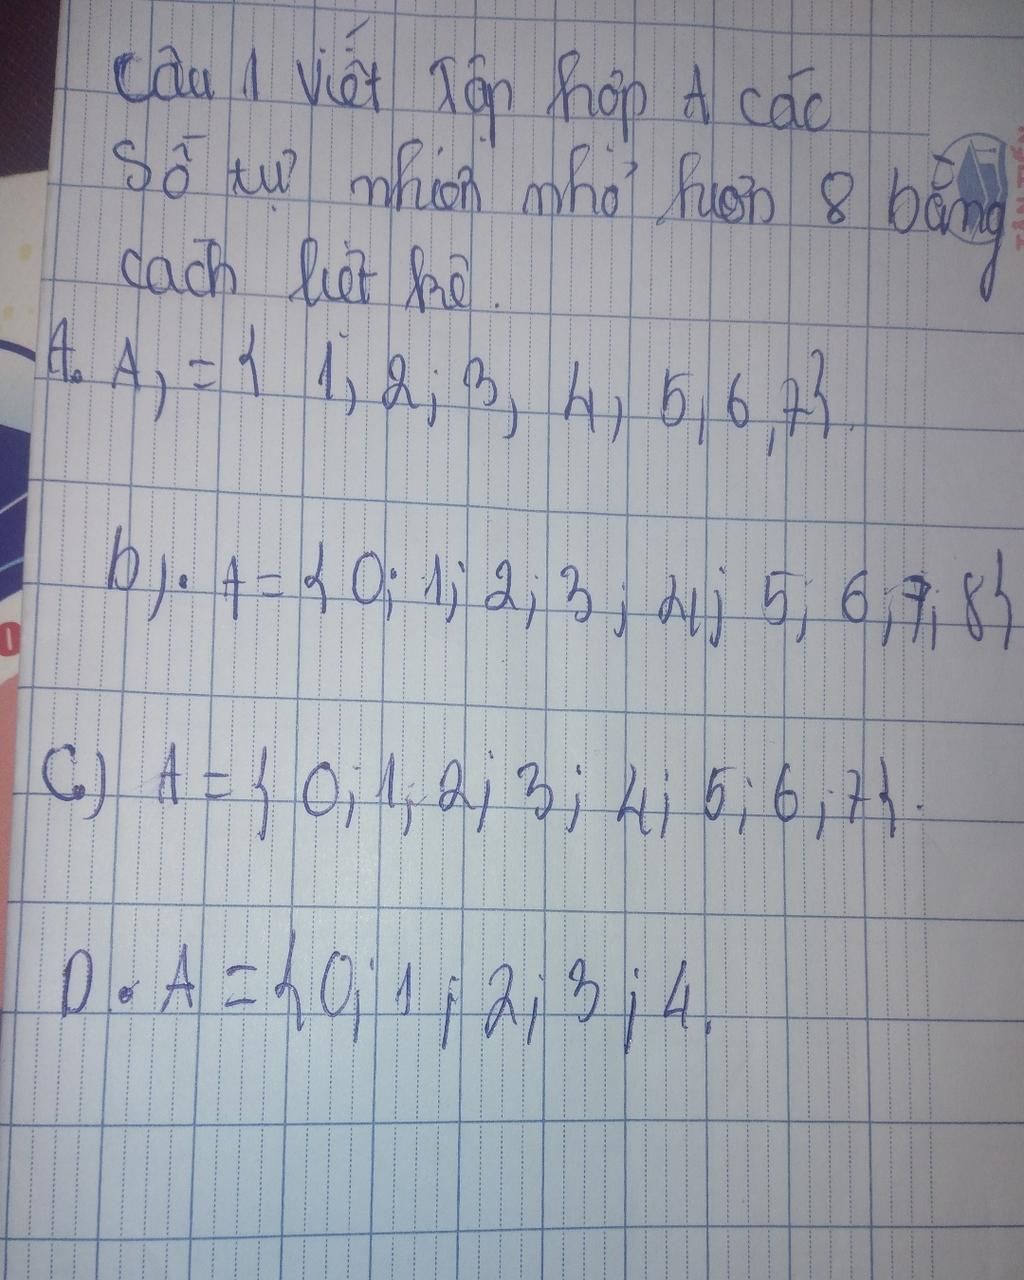 Câu 1 Viết Tập hợp A các
Số tự nhiên nhỏ hơn 8 bằng
cách liệt kê.
A. A, = { 1; 2; 3, 4, 5, 6, 7}.
b). A = { 0; 1; 2; 3; 4; 5; 6; 7; 8}
C) A = { 0; 1; 2; 3; 4; 5; 6; 7}.
D. A = { 0; 1; 2; 3; 4.